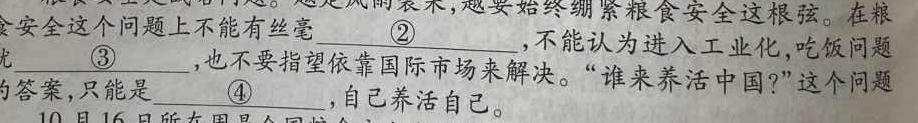 越要始终绷紧粮食安全这根弦。在粮
食安全这个问题上不能有丝毫②,不能认为进入工业化,吃饭问题
③,也不要指望依靠国际市场来解决。“谁来养活中国?”这个问题
的答案,只能是④,自己养活自己。
10月16日所在周是全国粮食